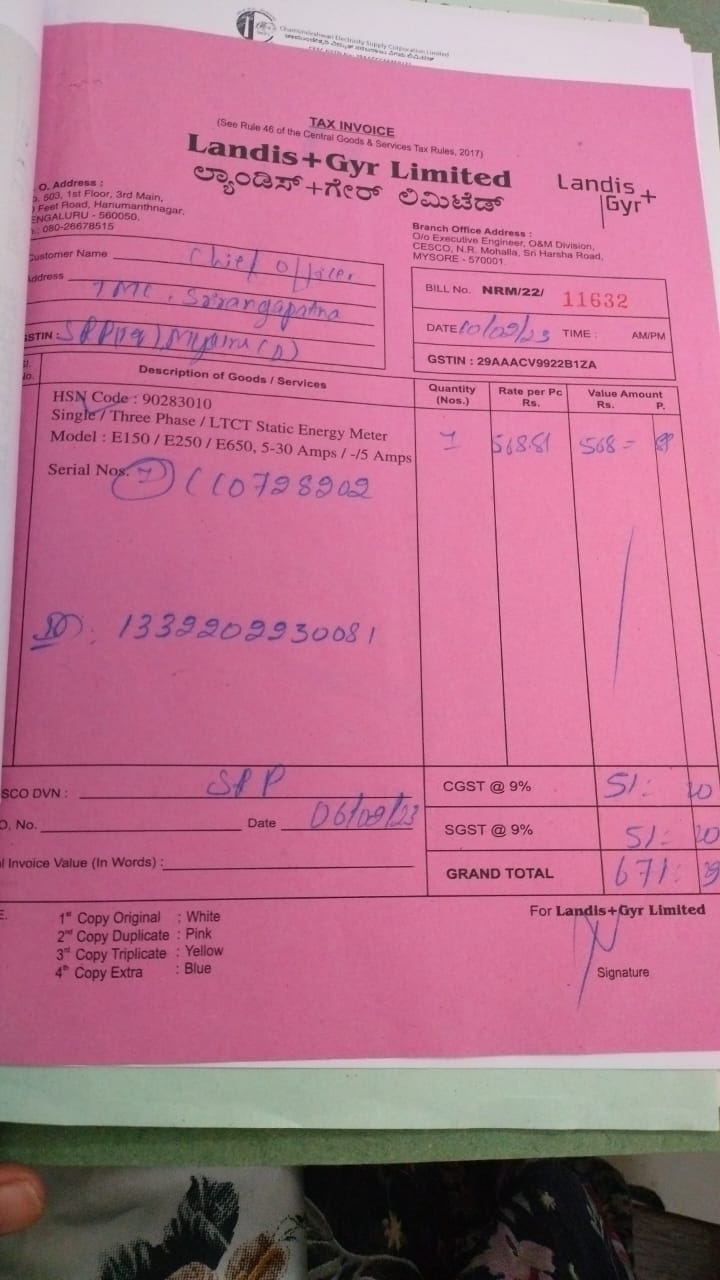 Chamundeshwari Electricity Supply Corporation Limited
TAX INVOICE
(See Rule 46 of the Central Goods & Services Tax Rules, 2017)
Landis+Gyr Limited
ಲ್ಯಾಂಡಿಸ್+ಗೇರ್ ಲಿಮಿಟೆಡ್
Landis+
Gyr
O. Address :
503, 1st Floor, 3rd Main,
Feet Road, Hanumanthnagar,
ENGALURU - 560050.
080-26678515
Branch Office Address :
O/o Executive Engineer, O&M Division,
CESCO, N.R. Mohalla, Sri Harsha Road,
MYSORE - 570001.
Customer Name Chief Officer
Address TMC, Srirangapatna
GSTIN :
BILL No. NRM/22/ 11632
DATE 10/09/23 TIME : AM/PM
GSTIN : 29AAACV9922B1ZA
No. Description of Goods / Services Quantity (Nos.) Rate per Pc Rs. Value Amount Rs. P.
HSN Code : 90283010
Single / Three Phase / LTCT Static Energy Meter
Model : E150 / E250 / E650, 5-30 Amps / -/5 Amps 1 568.81 568=
Serial Nos. 1
ID: 1339202930081
SCO DVN : SRP
CGST @ 9% 51: 20
O, No. Date 06/09/23
SGST @ 9% 51: 20
l Invoice Value (In Words) :
GRAND TOTAL 671:
E.
1st Copy Original : White
2nd Copy Duplicate : Pink
3rd Copy Triplicate : Yellow
4th Copy Extra : Blue
For Landis+Gyr Limited
Signature